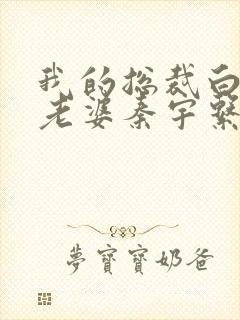 我的总裁白
老婆秦宇繋
夢寶寶奶爸